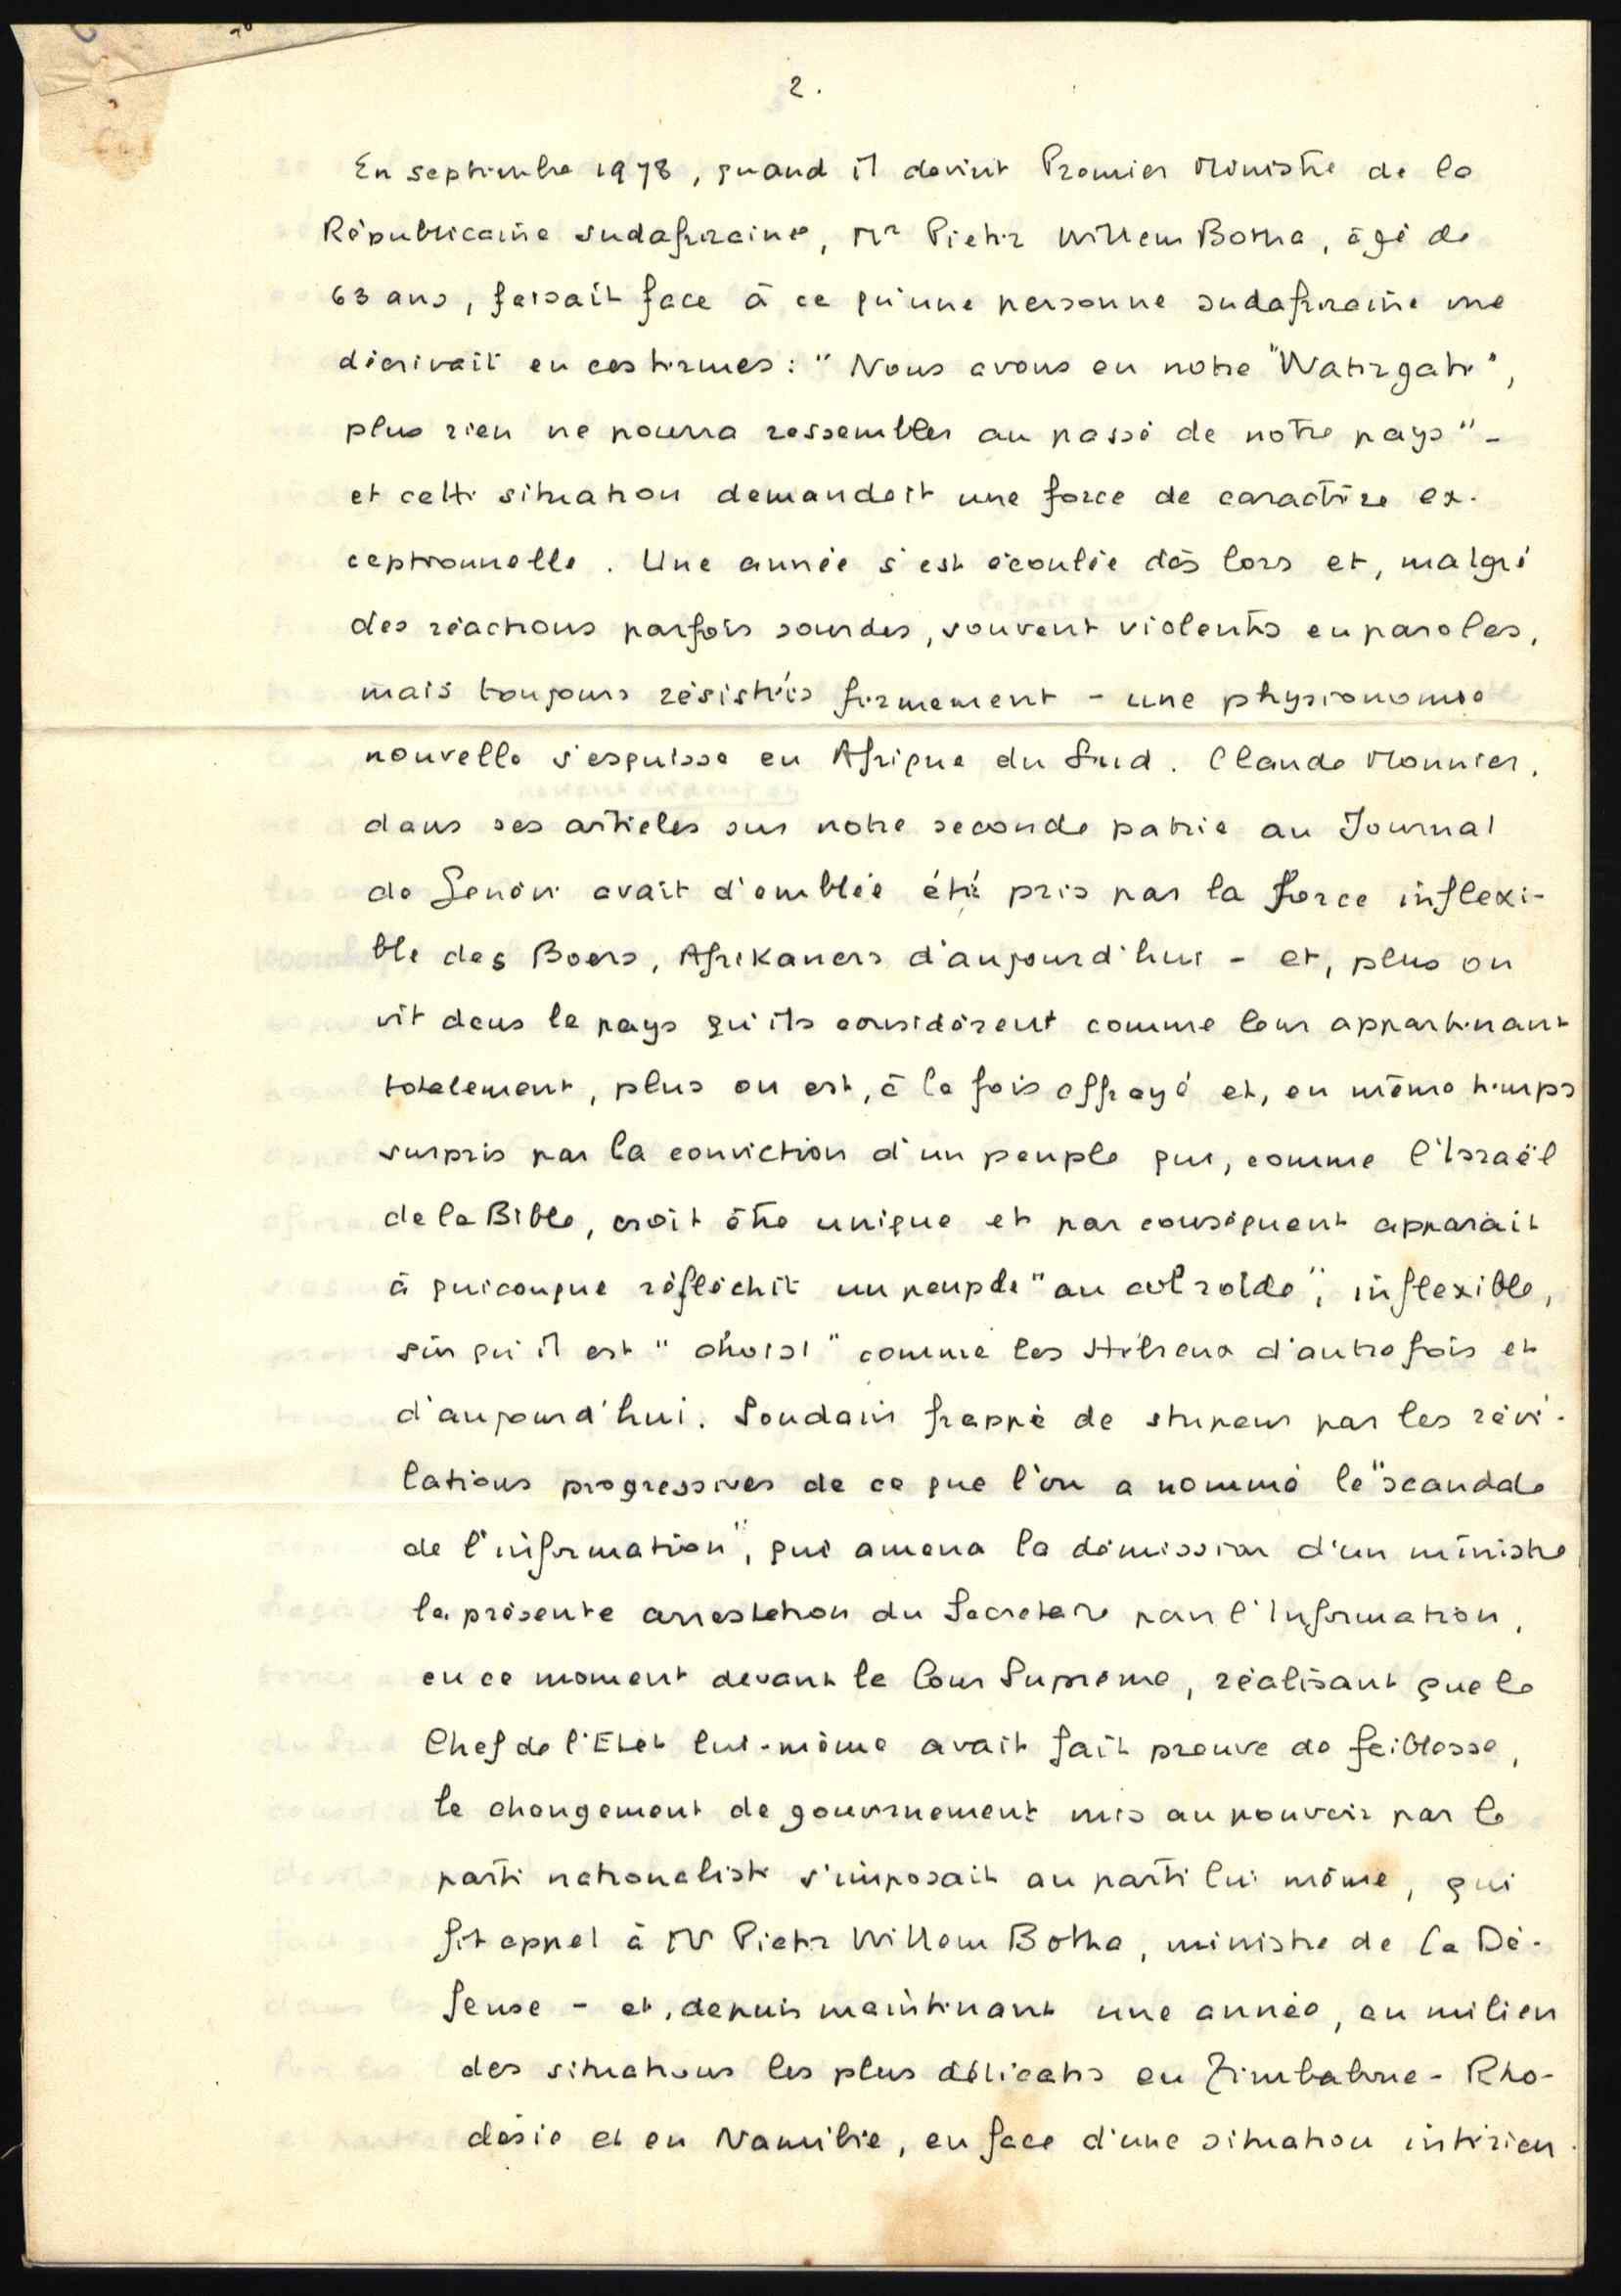 2.
En septembre 1978, quand il devint Premier Ministre de la
Républicaine sudafricaine, Mr Pieter Willem Botha, âgé de
63 ans, faisait face à ce qu'une personne sudafricaine me
décrivait en ces termes : " Nous avons eu notre "Watergate",
plus rien ne pourra ressembler au passé de notre pays" -
et cette situation demandait une force de caractère ex-
ceptionnelle. Une année s'est écoulée dès lors et, malgré
des réactions parfois sourdes, souvent violentes en paroles,
mais toujours résistées fermement - une physionomie
nouvelle s'esquisse en Afrique du Sud. Claude Monnier,
dans ses articles sur notre seconde patrie au Journal
de Genève avait d'emblée été pris par la force inflexi-
ble des Boers, Afrikaners d'aujourd'hui - et, plus on
vit dans le pays qu'ils considèrent comme leur appartenant
totalement, plus on est, à la fois effrayé et, en même temps
surpris par la conviction d'un peuple qui, comme l'Israël
de la Bible, croit être unique et par conséquent apparaît
à quiconque réfléchit un peuple "au col roide", inflexible,
sûr qu'il est "choisi" comme les Hébreux d'autrefois et
d'aujourd'hui. Soudain frappé de stupeur par les révé-
lations progressives de ce que l'on a nommé le "scandale
de l'information", qui amena la démission d'un ministre
la présente arrestation du Secretaire pour l'Information,
en ce moment devant la Cour Suprême, réalisant que le
Chef de l'Etat lui-même avait fait preuve de faiblesse,
le changement de gouvernement mis au pouvoir par le
parti nationaliste s'imposait au parti lui même, qui
fit appel à Mr Pieter Willem Botha, ministre de la Dé-
fense - et, depuis maintenant une année, au milieu
des situations les plus délicates en Zimbabwe - Rho-
désie et en Namibie, en face d'une situation intérieu-